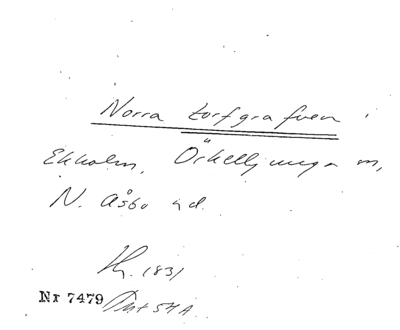 Norra torfgrafven i
Ekholm, Örkelljunga sn,
N. Åsbo hd.
1831
Nr 7479